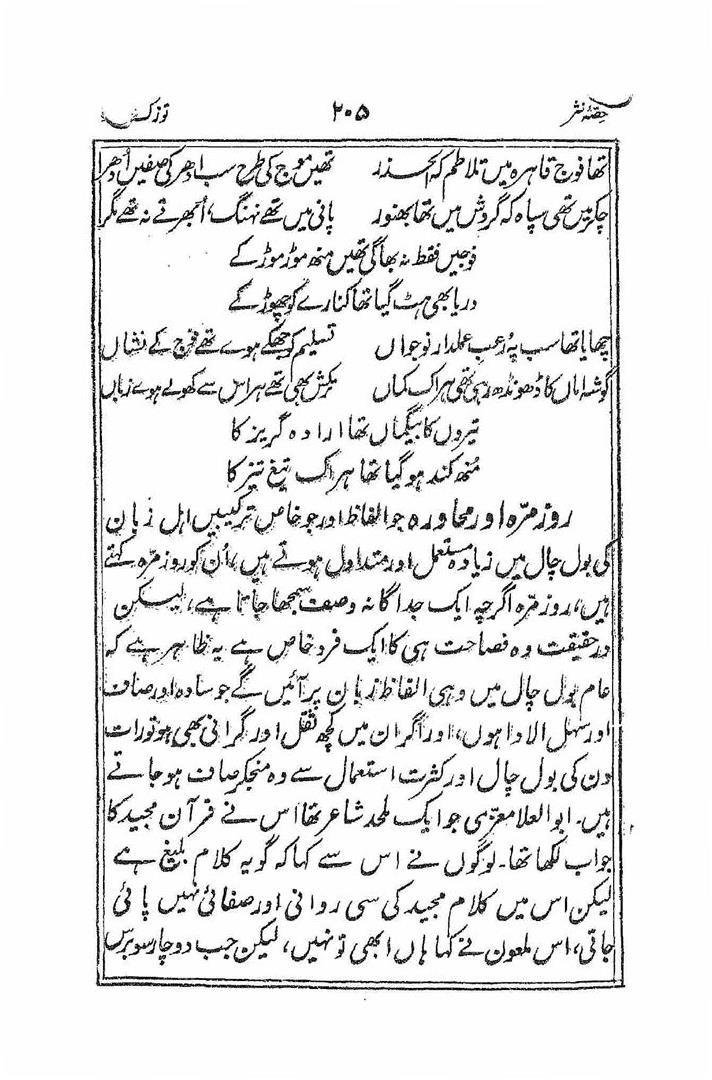 حصۂ نثر ۲۰۵ توزک
تھا فوج قاہرہ میں تلاطم کہ الحذر تھیں موج کی طرح سب ادھر کی صفیں اُدھر
چکر میں تھی سپاہ کہ گردش میں تھا بھنور پانی میں تھے نہنگ، اُبھرتے نہ تھے مگر
فوجیں فقط نہ بھاگی تھیں منھ موڑ موڑ کے
دریا بھی ہٹ گیا تھا کنارے کو چھوڑ کے
چھایا تھا سب پہ رُعب علمدار نوجواں تسلیم کو جھکے ہوے تھے فوج کے نشاں
گوشہ اماں کا ڈھونڈھ رہی تھی ہر اک کماں ترکش بھی تھے ہراس سے کھولے ہوے زباں
تیروں کا بیگماں تھا ارادہ گریز کا
مُنھ کند ہو گیا تھا ہر اک تیغ تیز کا
روزمرّہ اور محاورہ جو الفاظ اور جو خاص ترکیبیں اہل زبان
کی بول چال میں زیادہ مستعمل اور متداول ہوتے ہیں، اُن کو روزمرّہ کہتے
ہیں، روزمرّہ اگرچہ ایک جداگانہ وصف سمجھا جاتا ہے، لیکن
درحقیقت وہ فصاحت ہی کا ایک فرد خاص ہے یہ ظاہر ہے کہ
عام بول چال میں وہی الفاظ زبان پر آئیں گے جو سادہ اور صاف
اور سہل الادا ہوں، اور اگر ان میں کچھ ثقل اور گرانی بھی ہو تو رات
دن کی بول چال اور کثرت استعمال سے وہ منجکر صاف ہو جاتے
ہیں۔ ابو العلا معرّی جو ایک ملحد شاعر تھا اس نے قرآن مجید کا
جواب لکھا تھا۔ لوگوں نے اس سے کہا کہ گو یہ کلام بلیغ ہے
لیکن اس میں کلام مجید کی سی روانی اور صفائی نہیں پائی
جاتی، اس ملعون نے کہا ہاں ابھی تو نہیں، لیکن جب دو چار سو برس